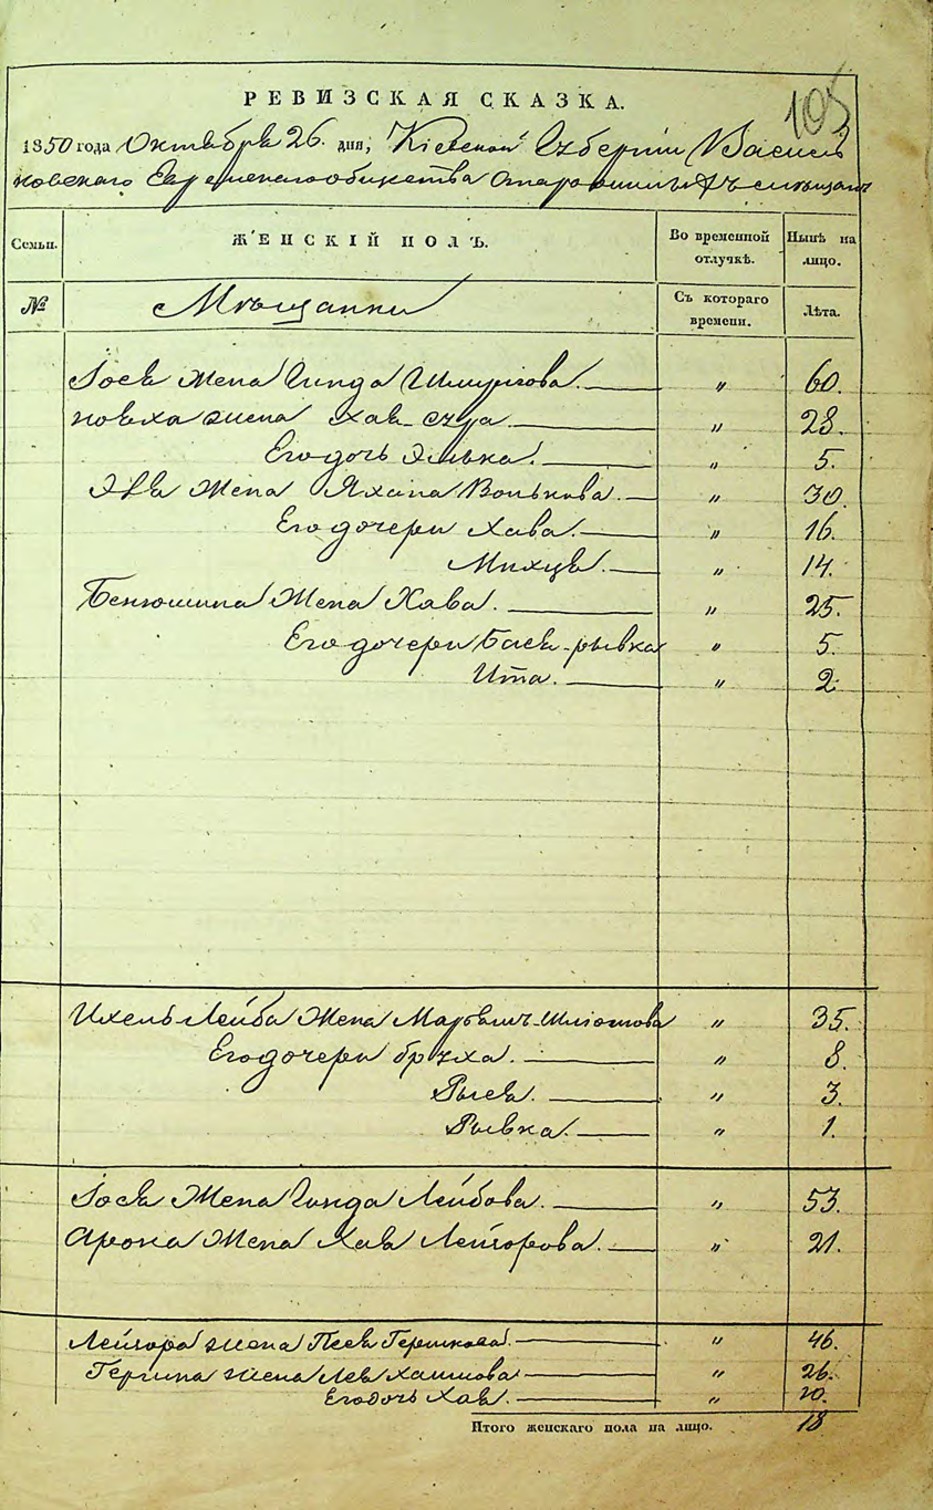 105
РЕВИЗСКАЯ СКАЗКА.
1850 года Октября 26. дня, Кіевской Губерніи Василь
ковскаго Еврейскаго общества
Семьи. ЖЕНСКІЙ ПОЛЪ. Во временной отлучкѣ. Нынѣ на лицо.
№ Мѣщанки Съ котораго времени. Лѣта.
Іося жена Гинда " 60.
жена Хая " 28.
Его дочь Элька. " 5.
жена Волькова. " 30.
Его дочери Хава. " 16.
" 14.
Бенюмина жена Хава. " 25.
Его дочери Бася-рывка " 5.
Ита. " 2
Ихель Лейба жена " 35.
Его дочери бруха. " 8.
Рыся. " 3.
Рывка. " 1.
Іося жена Гинда Лейбова. " 53.
Арона жена Хая Лейзорова. " 21.
Лейзора жена Песя Гершкова. " 46.
жена Лея Хаимова " 26.
Его дочь Хая. "
Итого женскаго пола на лицо. 18